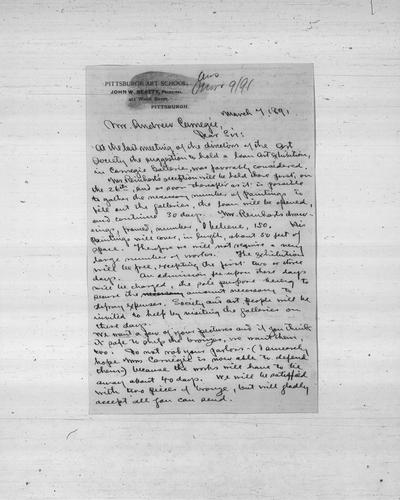 PITTSBURGH ART SCHOOL,
JOHN W. BEATTY, PRINCIPAL,
Wood Street,
PITTSBURGH.
ans
Mar 9/91
March 7, 1891
Mr. Andrew Carnegie,
Dear Sir:
At the last meeting of the directors of the Art
Society the suggestion to hold a loan Art Exhibition,
in Carnegie Galleries, was favorably considered.
Mr. Reinhart's reception will be held there first, on
the 26th, and as soon thereafter as it is possible
to gather the necessary number of paintings to
fill out the galleries, the loan will be opened,
and continue 30 days. Mr. Reinhart's draw-
ings, framed, number, I believe, 150. His
paintings will cover, in length, about 50 feet of
space. Therefore we will not require a very
large number of works. The exhibition
will be free, excepting the first two or three
days. An admission fee upon these days
will be charged, the sole purpose being to
secure the amount necessary to
defray expenses. Society and art people will be
invited to help by visiting the galleries on
these days.
We want a few of your pictures and if you think
it safe to ship the bronzes, we want them
too. Do not rob your parlors - (I sincerely
hope Mrs Carnegie is now able to defend
them) because the works will have to be
away about 40 days. We will be satisfied
with two pieces of bronze, but will gladly
accept all you can send.